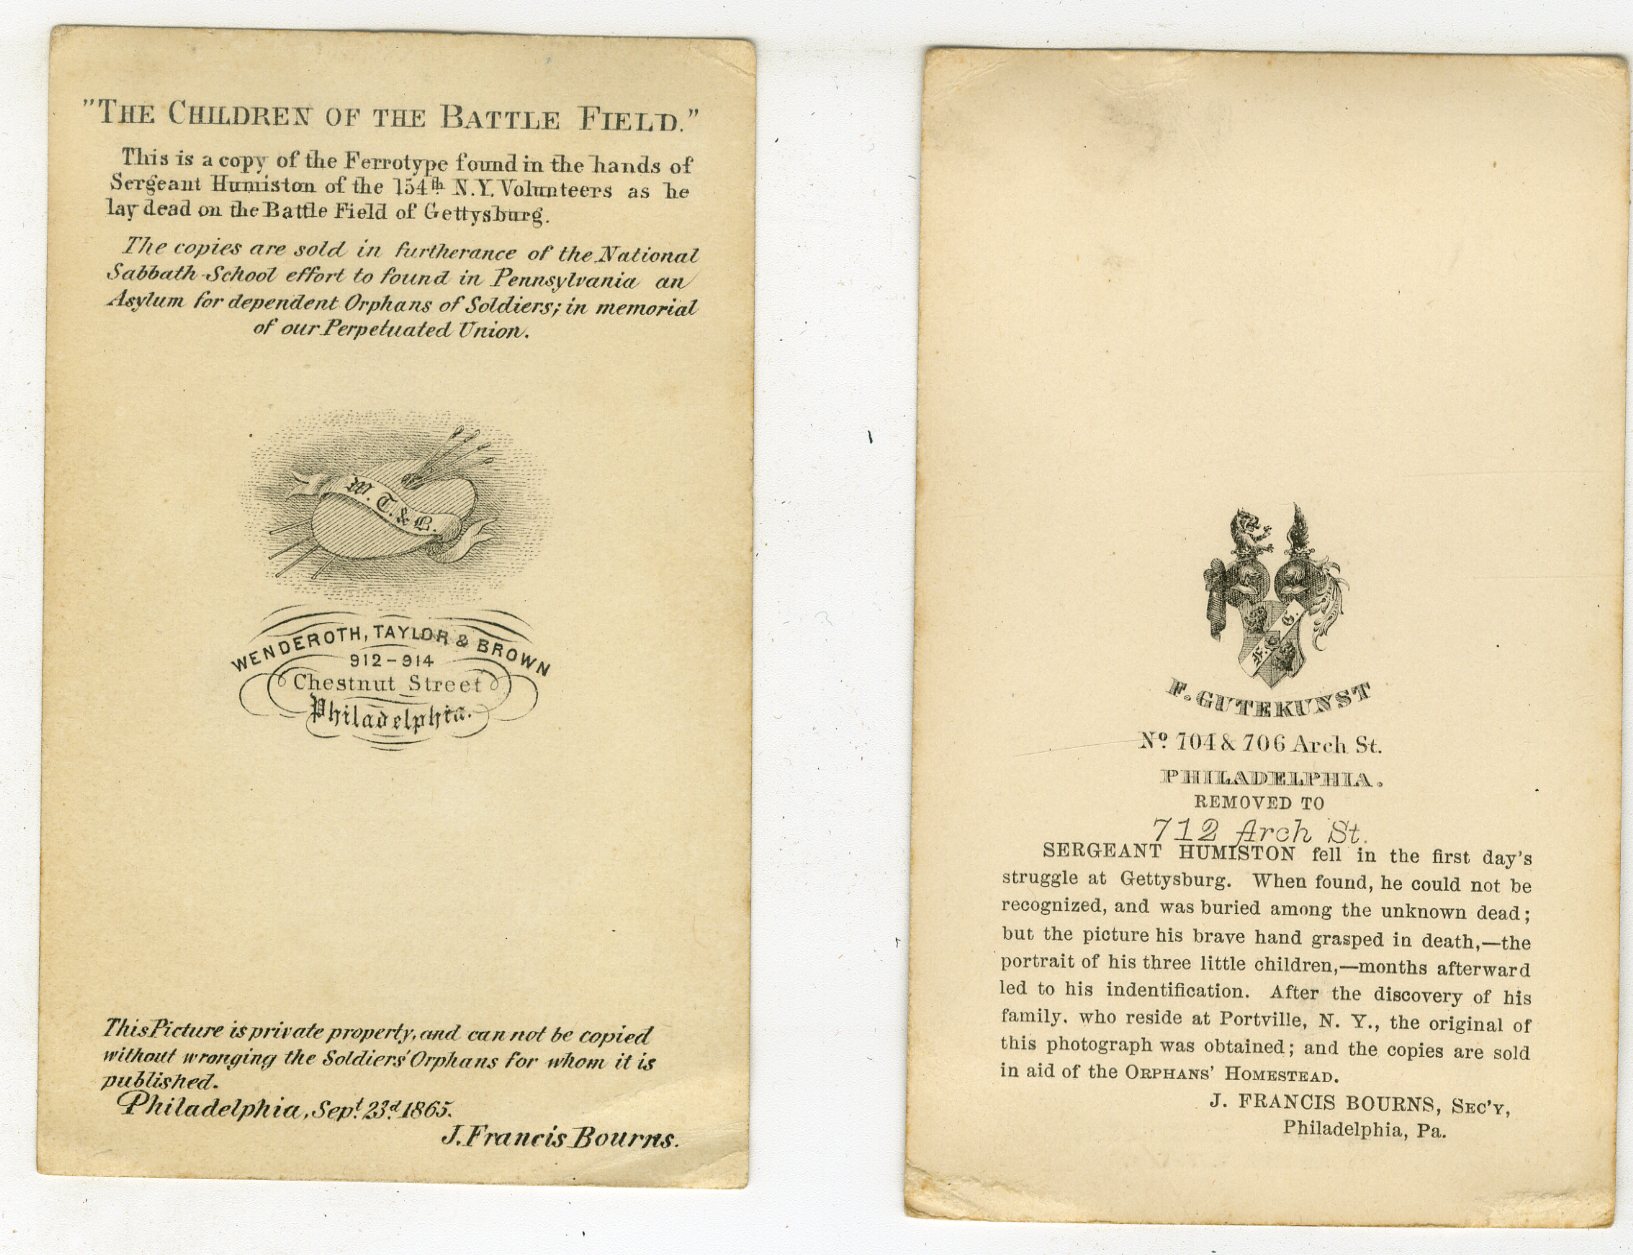 "THE CHILDREN OF THE BATTLE FIELD."
This is a copy of the Ferrotype found in the hands of
Sergeant Humiston of the 154th N.Y. Volunteers as he
lay dead on the Battle Field of Gettysburg.
The copies are sold in furtherance of the National
Sabbath-School effort to found in Pennsylvania an
Asylum for dependent Orphans of Soldiers; in memorial
of our Perpetuated Union.
W. T. & B.
WENDEROTH, TAYLOR & BROWN
912-914
Chestnut Street
Philadelphia.
This Picture is private property, and can not be copied
without wronging the Soldiers' Orphans for whom it is
published.
Philadelphia, Sept. 23d. 1865.
J. Francis Bourns.
F. G.
F. GUTEKUNST
No. 704 & 706 Arch St.
PHILADELPHIA.
REMOVED TO
712 Arch St.
SERGEANT HUMISTON fell in the first day's
struggle at Gettysburg. When found, he could not be
recognized, and was buried among the unknown dead;
but the picture his brave hand grasped in death,—the
portrait of his three little children,—months afterward
led to his indentification. After the discovery of his
family. who reside at Portville, N. Y., the original of
this photograph was obtained; and the copies are sold
in aid of the ORPHANS' HOMESTEAD.
J. FRANCIS BOURNS, SEC'Y,
Philadelphia, Pa.